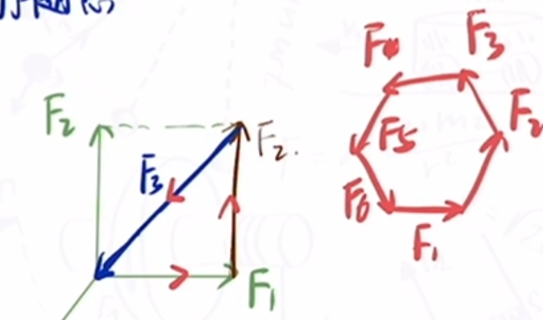 F₂
F₂.
F₃
F₁
F₄
F₃
F₂
F₅
F₆
F₁